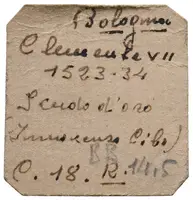 Bologna
Clemente VII
1523-34
Scudo d'oro
(Innocenzo Cibo)
C. 18. R.
BB 145